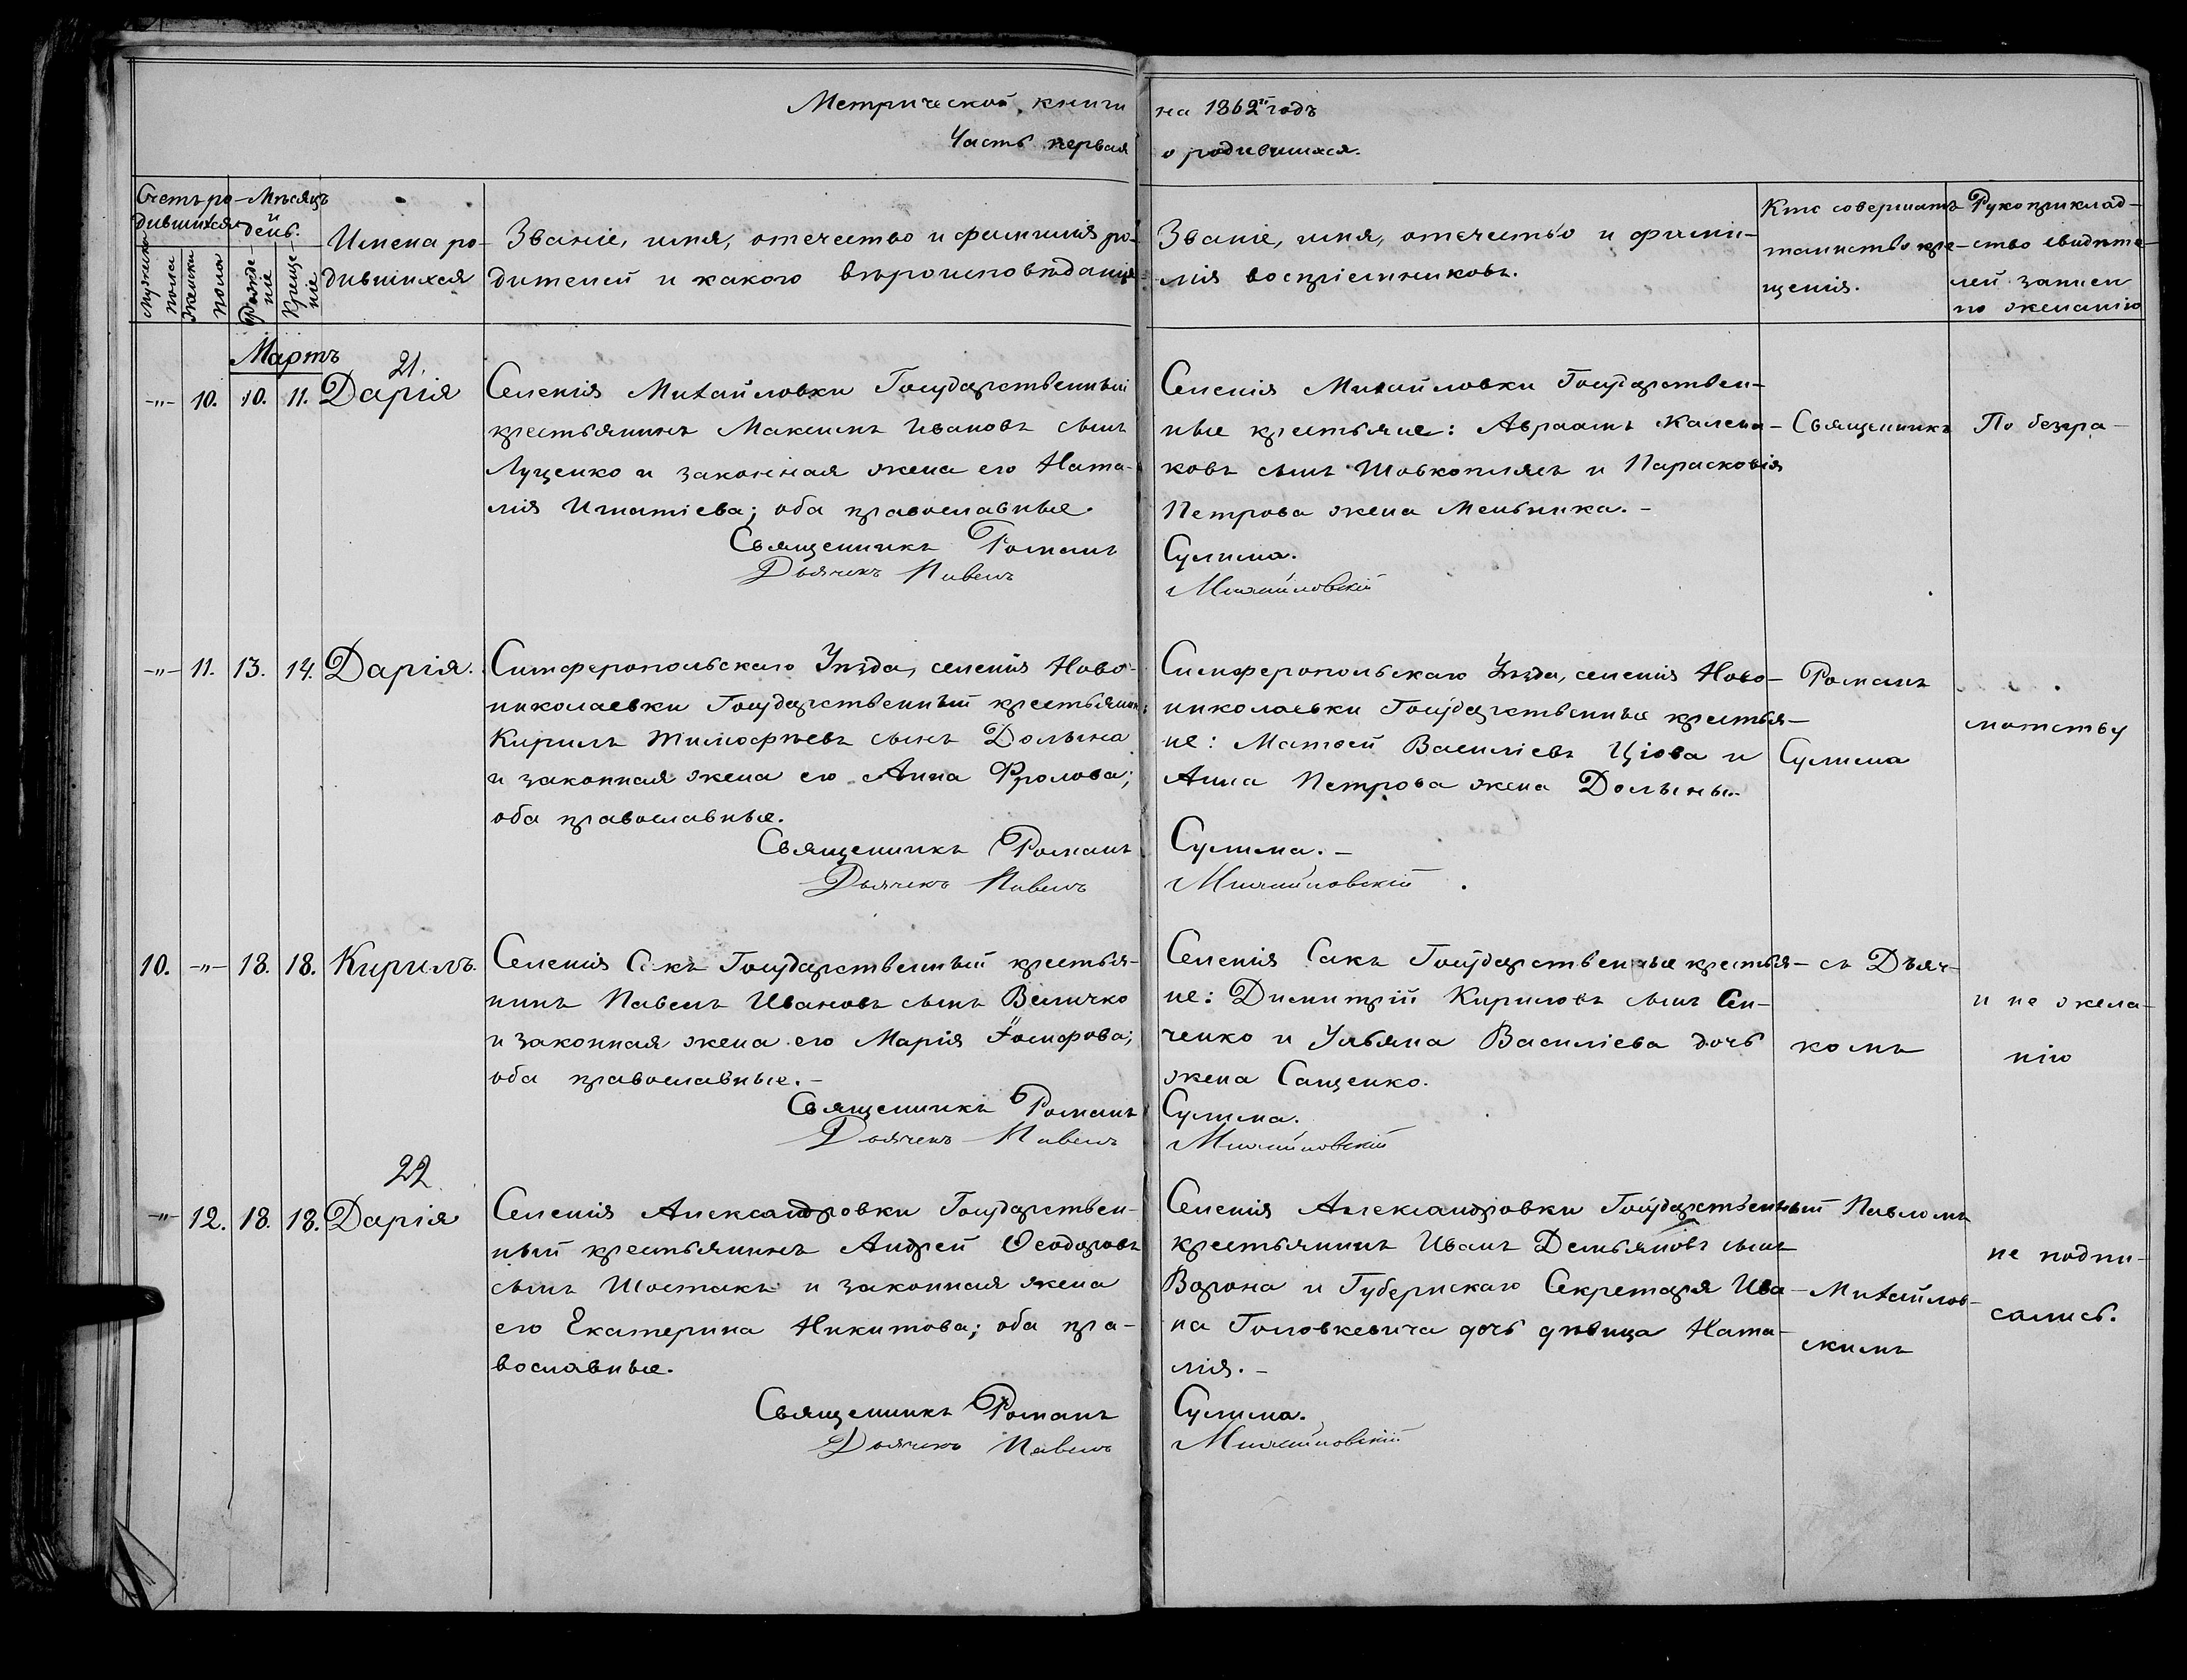 Метрической книги на 1862й годъ
Часть первая о родившихся.
Счетъ ро-
дившихся
Мужска пола
Женска пола
Мѣсяцъ
и
день.
Рожде-
ніе
Креще-
ніе
Имена ро-
дившихся
Званіе, имя, отечество и фамилія ро-
дителей и какого вѣроисповѣданія
Званіе, имя, отечество и фами-
лія воспріемниковъ.
Кто совершалъ
таинство кре-
щенія.
Рукоприклад-
ство свидѣте-
лей записи
по желанію
Мартъ
21.
-"- 10. 10. 11. Дарія
Селенія Михайловки Государственный
крестьянинъ Максимъ Ивановъ сынъ
Луценко и законная жена его Ната-
лія Игнатіева; оба православные.
Священникъ Романъ
Дьячекъ Павелъ
Селенія Михайловки Государствен-
ные крестьяне: Авраамъ Калени-
ковъ сынъ Шовкоплясъ и Парасковія
Петрова жена Мельника. -
Сулима.
Михайловскій
-"- 11. 13. 14. Дарія.
Симферопольскаго Уѣзда, селенія Ново-
николаевки Государственный крестьянинъ
Кирилъ Тимофѣевъ сынъ Долына
и законная жена его Анна Фролова;
оба православные.
Священникъ Романъ
Дьячекъ Павелъ
Симферопольскаго Уѣзда, селенія Ново-
николаевки Государственные крестья-
не: Матѳей Василіевъ Цюва и
Анна Петрова жена Долыны.
Сулима. -
Михайловскій
10. -"- 18. 18. Кирилъ.
Селенія Сакъ Государственный крестья-
нинъ Павелъ Ивановъ сынъ Величко
и законная жена его Марія Іосифова;
оба православные. -
Священникъ Романъ
Дьячекъ Павелъ
Селенія Сакъ Государственные крестья-
не: Димитрій Кириловъ сынъ Сен-
ченко и Ульяна Василіева дочь
жена Сащенко.
Сулима.
Михайловскій
22
-"- 12. 18. 18. Дарія
Селенія Александровки Государствен-
ный крестьянинъ Андрей Ѳеодоровъ
сынъ Шостакъ и законная жена
его Екатерина Никитова; оба пра-
вославные.
Священникъ Романъ
Дьячекъ Павелъ
Селенія Александровки Государственный
крестьянинъ Иванъ Демьяновъ сынъ
Ворона и Губернскаго Секретаря Ива-
на Головкевича дочь дѣвица Ната-
лія. -
Сулима.
Михайловскій
Священникъ
Романъ
Сулима
съ Дьяч-
комъ
Павломъ
Михайлов-
скимъ
По безгра-
мотству
и не жела-
нію
не подпи-
сались.